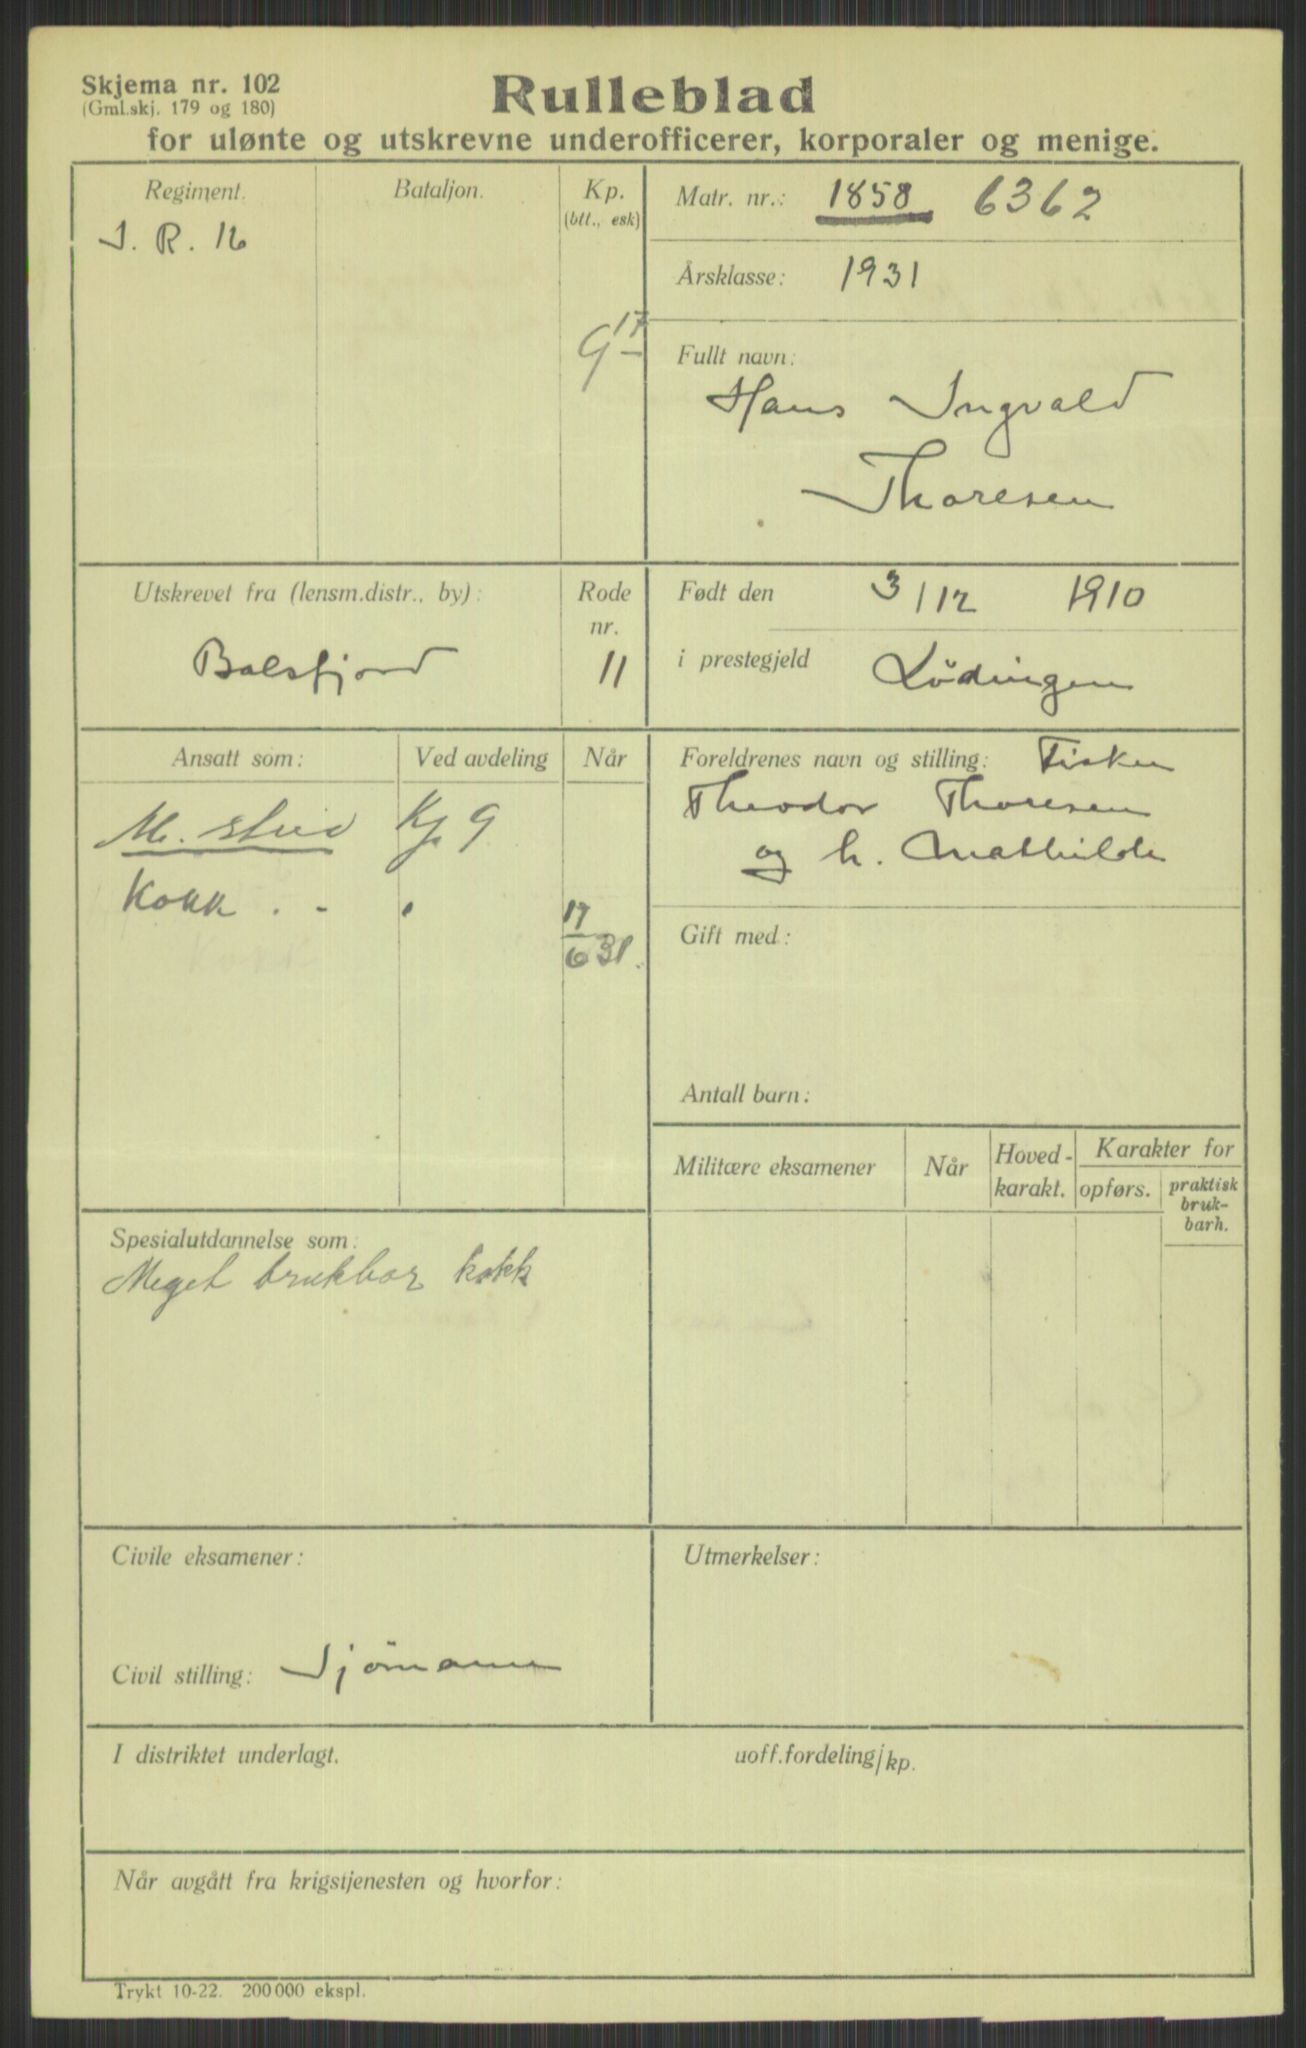 Skjema nr. 102
(Gml.skj. 179 og 180)
Rulleblad
for ulønte og utskrevne underofficerer, korporaler og menige.
Regiment.
J. R. 16
Bataljon.
Kp.
(btt., esk)
9 17
Matr. nr.: 1858 6362
Årsklasse: 1931
Fullt navn:
Hans Ingvald
Thoresen
Utskrevet fra (lensm.distr., by):
Balsfjord
Rode
nr.
11
Født den 3/12 1910
i prestegjeld Lödingen
Ansatt som: Ved avdeling Når
M. Kp 9
Kokk . - "
17
6 31.
Foreldrenes navn og stilling: Fisker
Theodor Thoresen
og h. Mathilde
Gift med:
Antall barn:
Militære eksamener
Når
Hoved-
karakt.
Karakter for
opførs.
praktisk
bruk-
barh.
Spesialutdannelse som:
Meget brukbar kokk
Civile eksamener:
Civil stilling: Sjömann
Utmerkelser:
I distriktet underlagt. uoff.fordeling/kp.
Når avgått fra krigstjenesten og hvorfor:
Trykt 10-22. 200 000 ekspl.